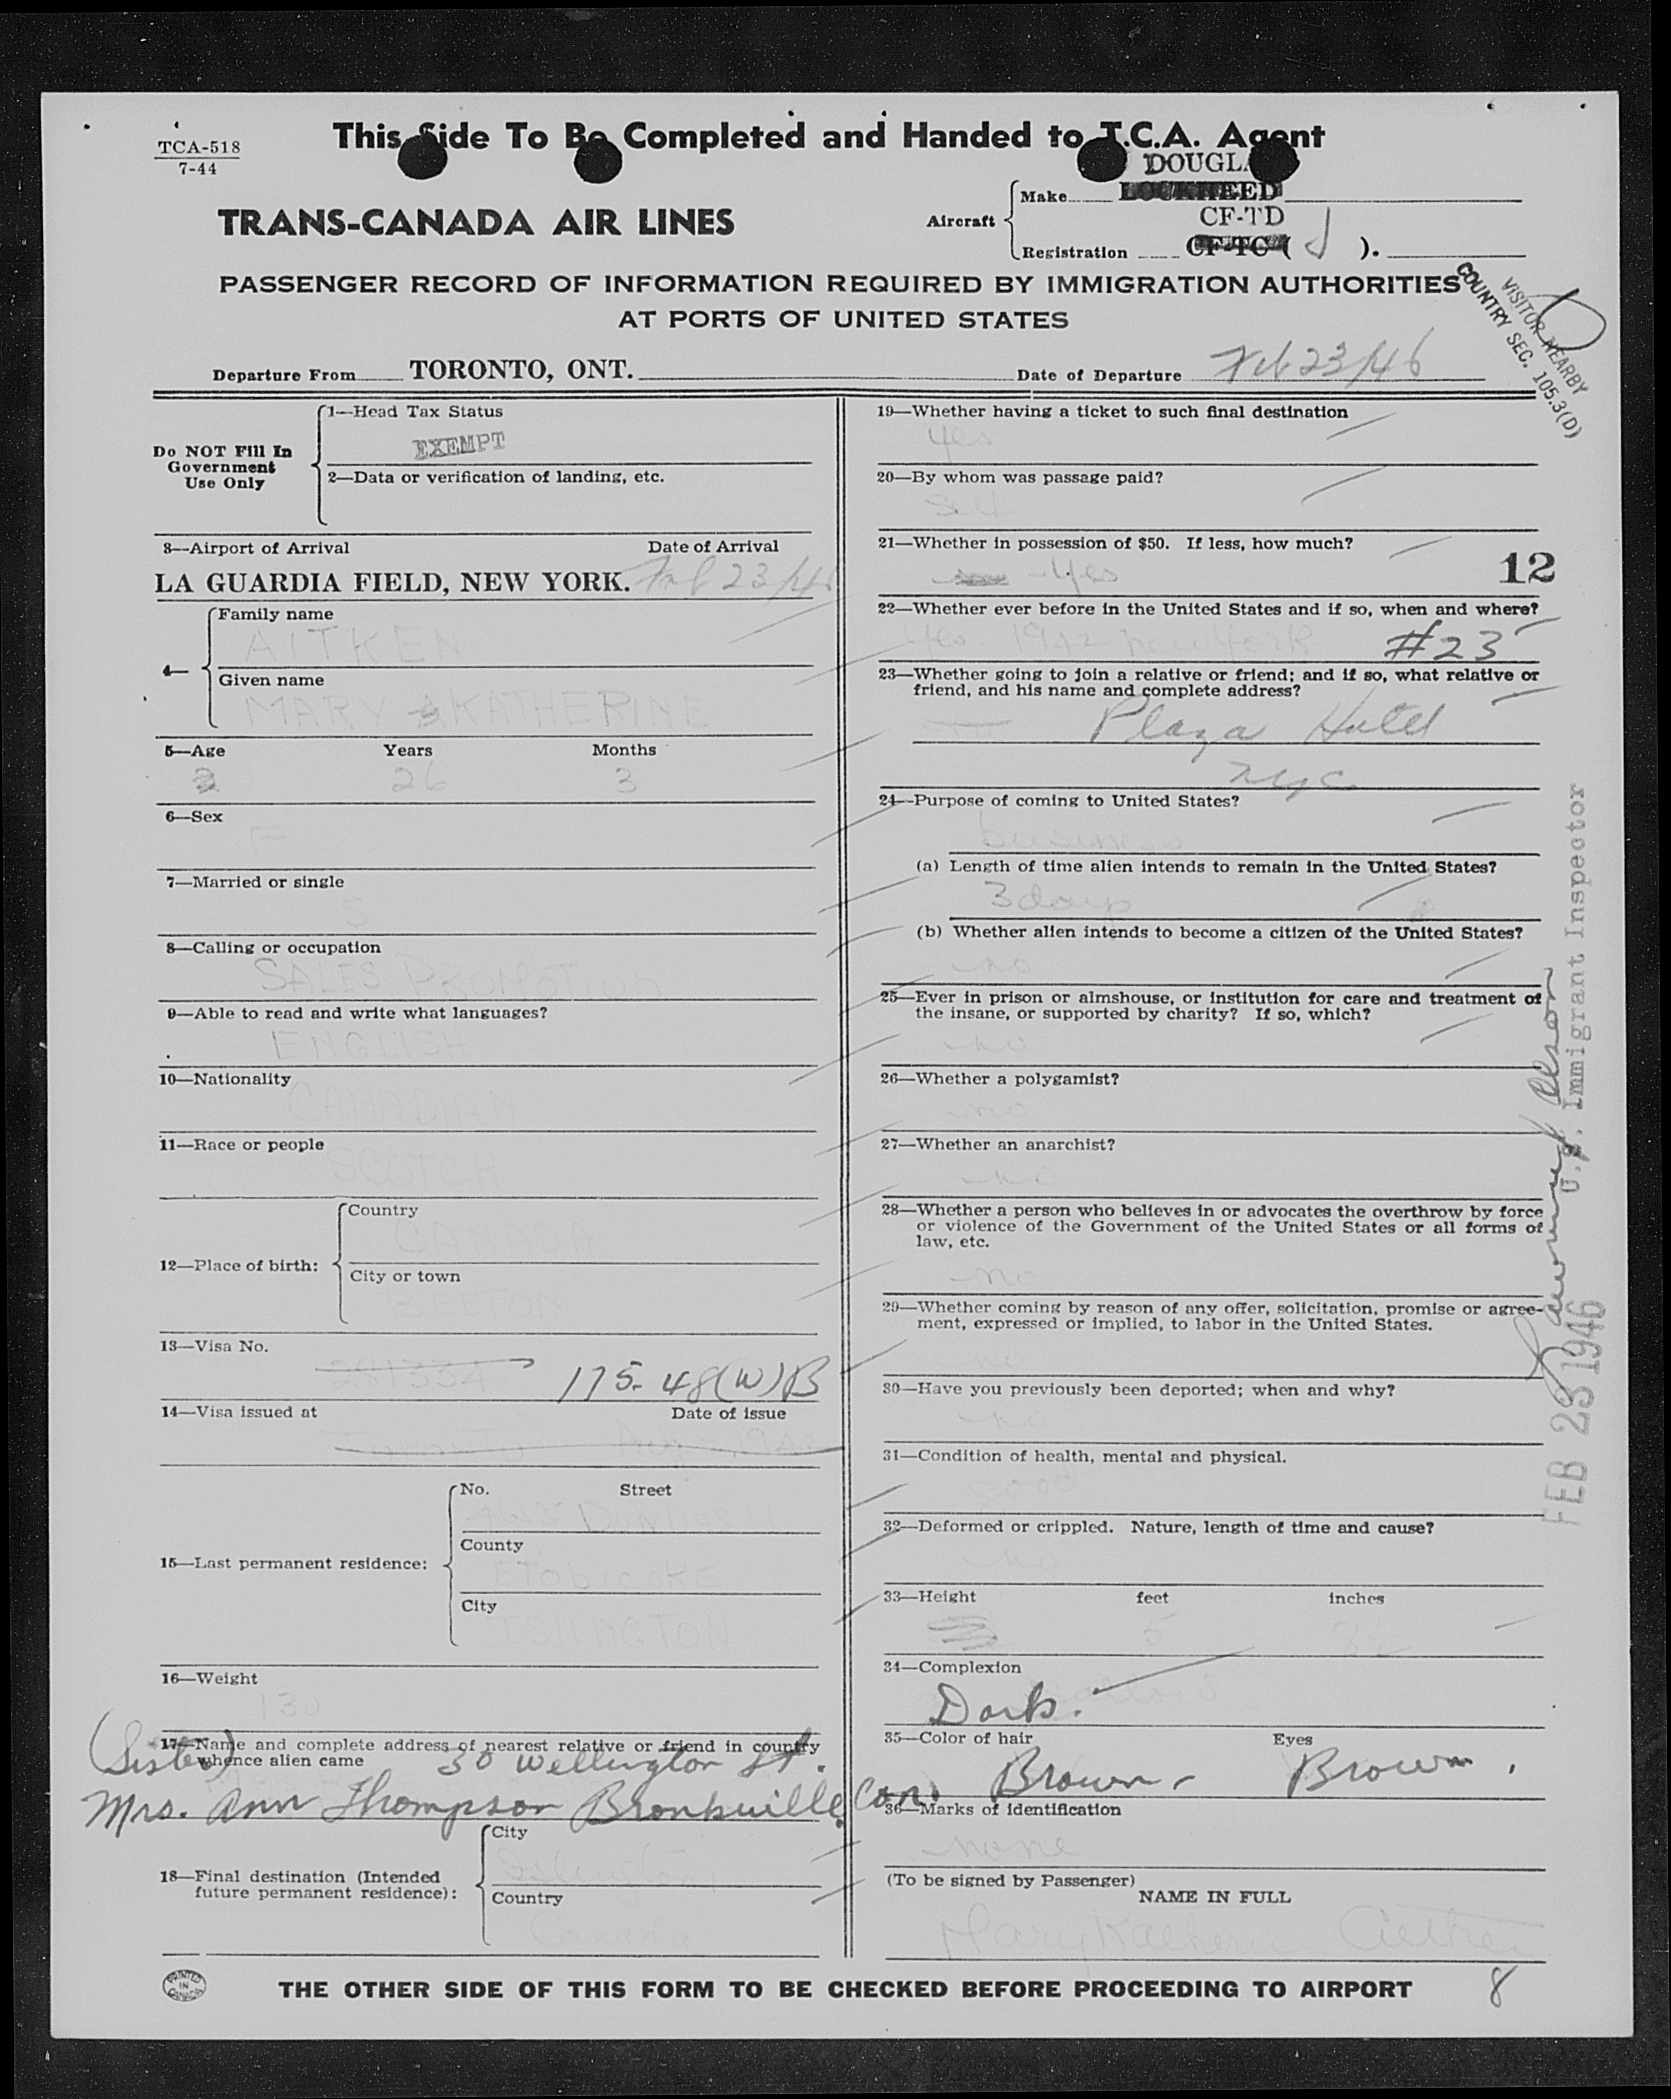 TCA-518
7-44
This Side To Be Completed and Handed to T.C.A. Agent
DOUGLA
TRANS-CANADA AIR LINES
Aircraft
Make LOCKHEED
CF-TD
Registration CF-TC ( J ).
PASSENGER RECORD OF INFORMATION REQUIRED BY IMMIGRATION AUTHORITIES
AT PORTS OF UNITED STATES
VISITOR NEARBY
COUNTRY SEC. 105.3(D)
Departure From TORONTO, ONT. Date of Departure Feb 23/46
Do NOT Fill In
Government
Use Only
1—Head Tax Status
EXEMPT
2—Data or verification of landing, etc.
3—Airport of Arrival Date of Arrival
LA GUARDIA FIELD, NEW YORK. Feb 23/46
4—
Family name
AITKEN
Given name
MARY KATHERINE
5—Age Years Months
26 3
6—Sex
F
7—Married or single
S
8—Calling or occupation
SALES PROMOTION
9—Able to read and write what languages?
ENGLISH
10—Nationality
CANADIAN
11—Race or people
SCOTCH
12—Place of birth:
Country
CANADA
City or town
BEETON
13—Visa No.
175-48(W)B
14—Visa issued at Date of issue
15—Last permanent residence:
No. Street
County
ETOBICOKE
City
ISLINGTON
16—Weight
130
17—Name and complete address of nearest relative or friend in country
whence alien came
(Sister) 30 Wellington St.
Mrs. Ann Thompson Bronkville Can.
18—Final destination (Intended
future permanent residence):
City
Islington
Country
Canada
19—Whether having a ticket to such final destination
yes
20—By whom was passage paid?
Self
21—Whether in possession of $50. If less, how much?
yes
12
22—Whether ever before in the United States and if so, when and where?
yes 1942 new york #23
23—Whether going to join a relative or friend; and if so, what relative or
friend, and his name and complete address?
Plaza Hotel
NYC
24—Purpose of coming to United States?
business
(a) Length of time alien intends to remain in the United States?
3 days
(b) Whether alien intends to become a citizen of the United States?
no
25—Ever in prison or almshouse, or institution for care and treatment of
the insane, or supported by charity? If so, which?
no
26—Whether a polygamist?
no
27—Whether an anarchist?
no
28—Whether a person who believes in or advocates the overthrow by force
or violence of the Government of the United States or all forms of
law, etc.
no
29—Whether coming by reason of any offer, solicitation, promise or agree-
ment, expressed or implied, to labor in the United States.
no
30—Have you previously been deported; when and why?
no
31—Condition of health, mental and physical.
good
32—Deformed or crippled. Nature, length of time and cause?
no
33—Height feet inches
5
34—Complexion
Dark.
35—Color of hair Eyes
Brown Brown.
36—Marks of identification
none
(To be signed by Passenger)
NAME IN FULL
Mary Katherine Aitken
U.S. Immigrant Inspector
FEB 23 1946
PRINTED IN CANADA
THE OTHER SIDE OF THIS FORM TO BE CHECKED BEFORE PROCEEDING TO AIRPORT
8